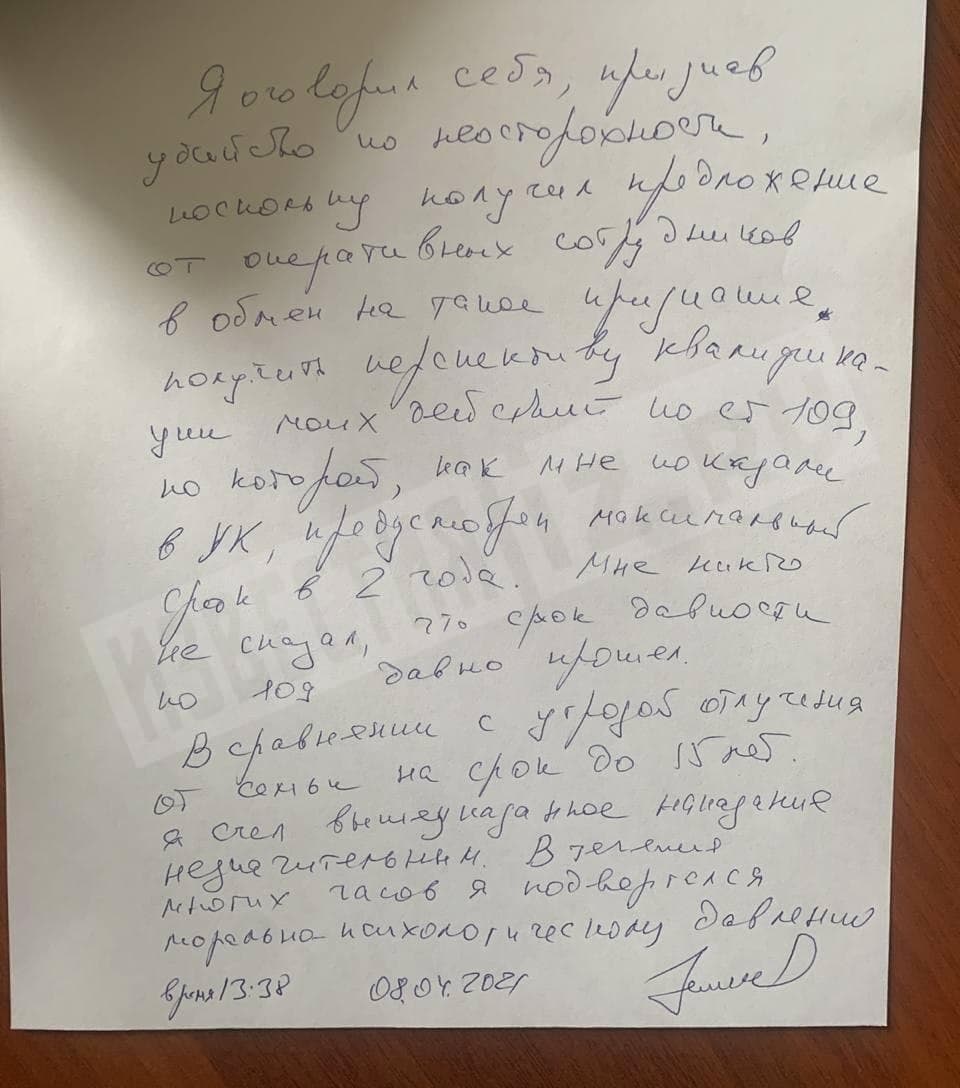 Я оговорил себя, признав
убийство по неосторохности,
поскольку получил предложение
от оперативных сотрудников
в обмен на такое признание
получить перспективу квалифика-
ции моих действий по ст 109,
по которой, как мне показали
в УК, предусмотрен максимальный
срок в 2 года. Мне никто
не сказал, что срок давности
по 109 давно прошел.
В сравнении с угрозой отлучения
от семьи на срок до 15 лет.
я счел вышеуказанное наказание
незначительным. В течения
многих часов я подвергался
морально психологическому давлению
время 13:38 08.04.2021